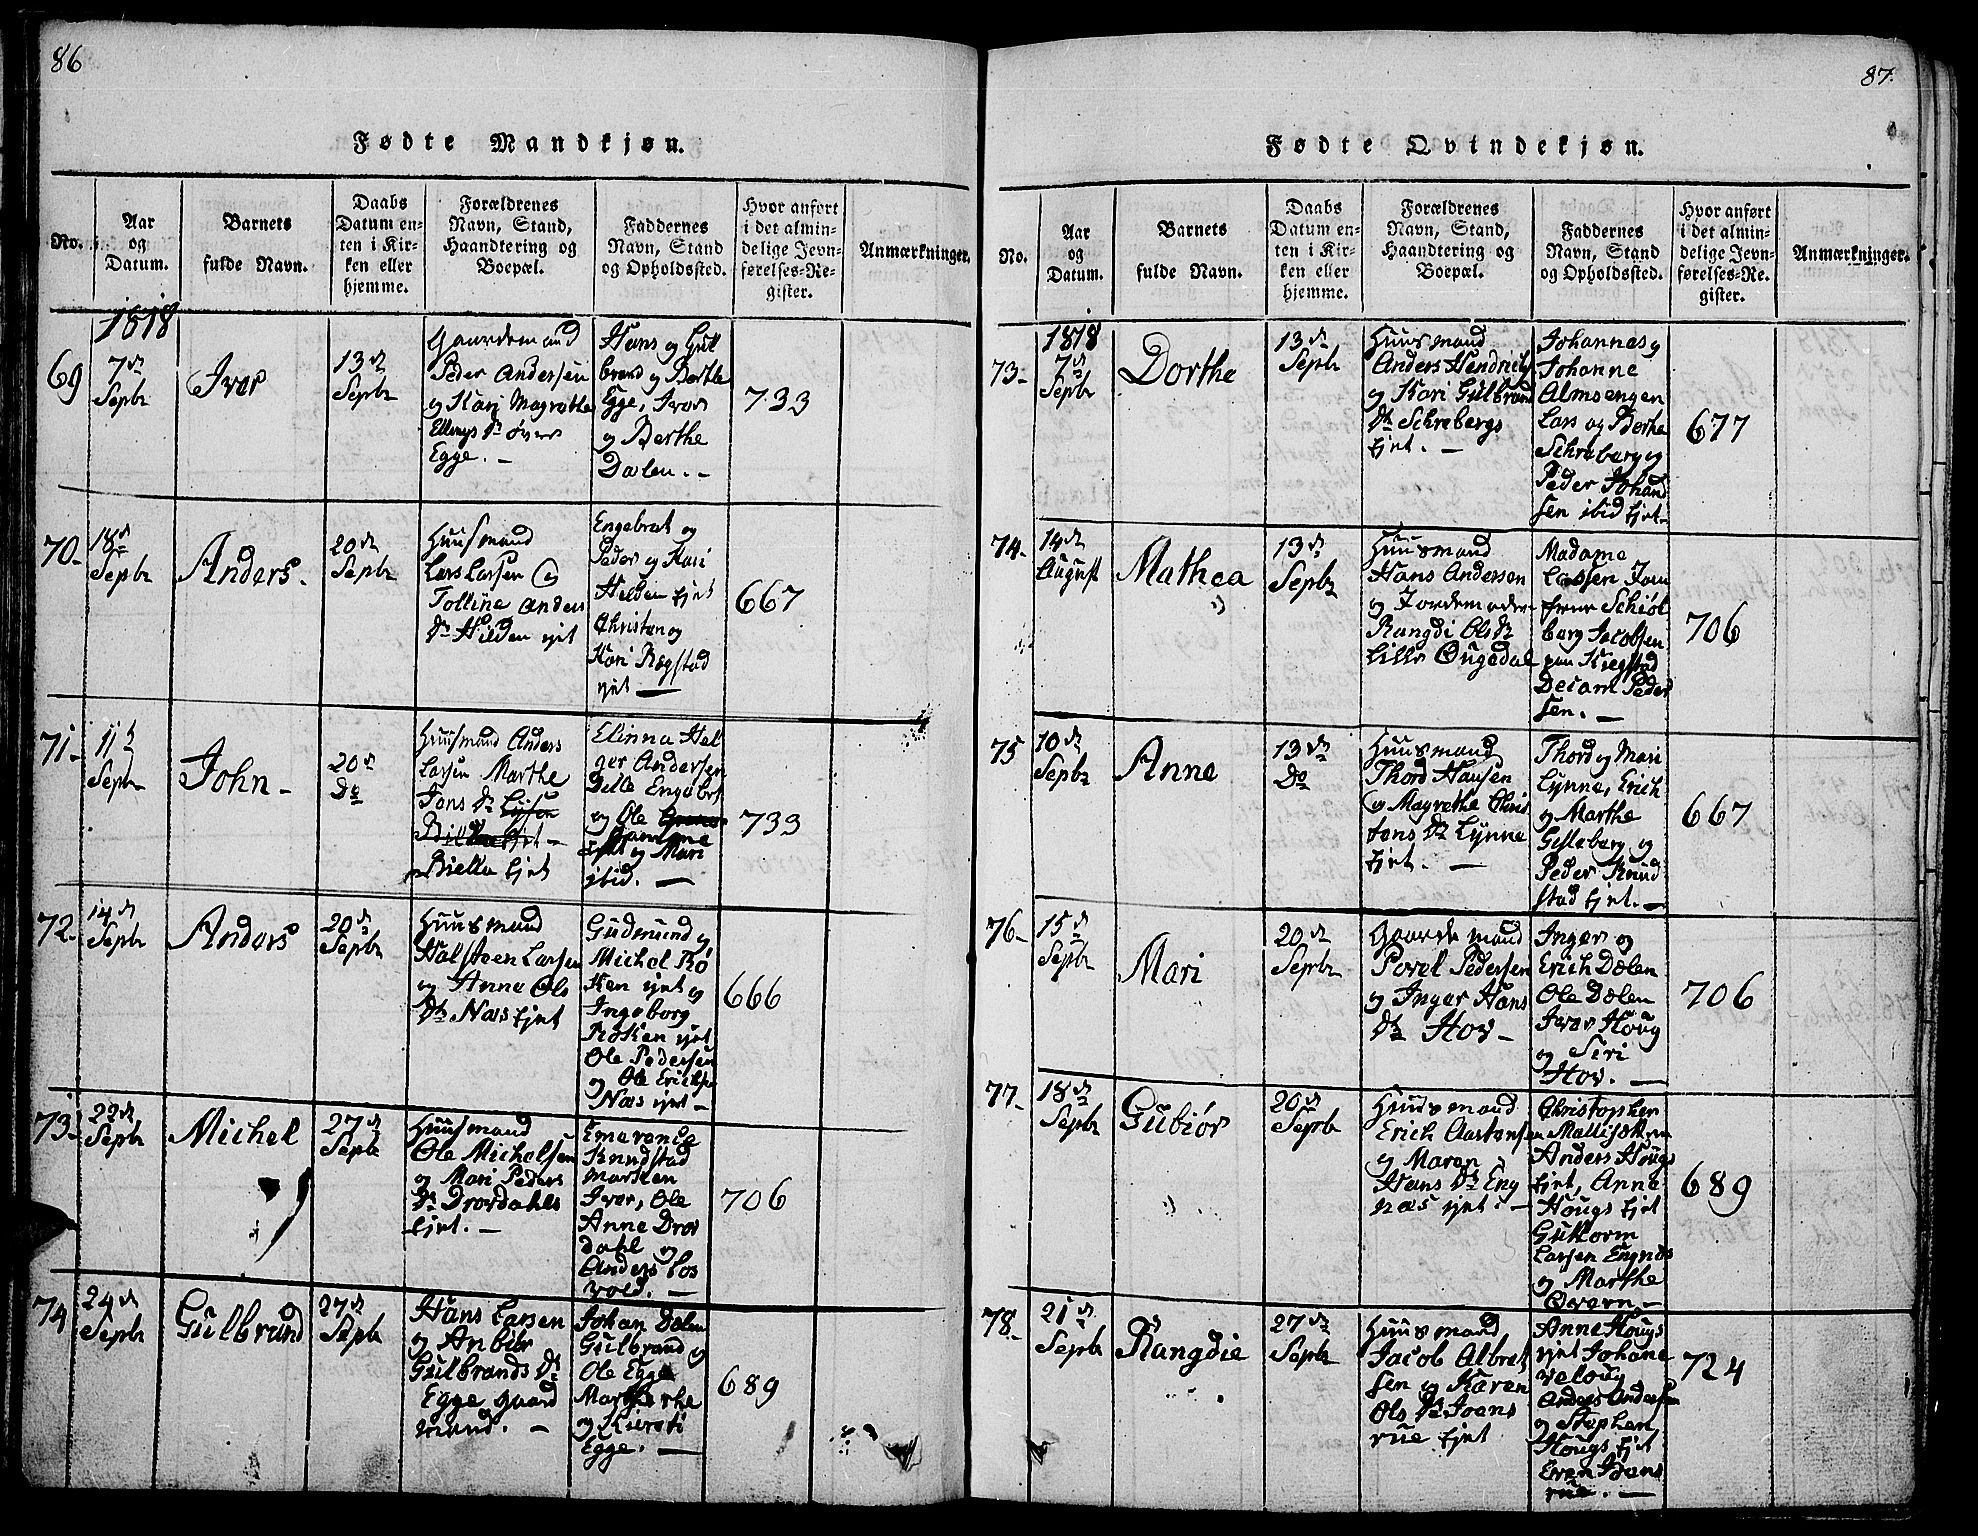 86
Fødte Mandkjøn.
No.
Aar
og
Datum.
Barnets
fulde Navn.
Daabs
Datum en-
ten i Kir-
ken eller
hjemme.
Forældrenes
Navn, Stand,
Haandtering og
Boepæl.
Faddernes
Navn, Stand
og Opholdssted.
Hvor anført
i det almin-
delige Jevn-
førelses-Re-
gister.
Anmærkninger.
1818
69
7de
Septbr
Ivar
13de
Septbr
Gaardemand
Peder Andersen
og Kari Magrethe
Ellings Dr øvre
Egge. -
Hans og Gul
brand og Berthe
Egge, Ivar
og Berthe
Dalen. -
733
70-
18de
Septbr
Anders.
20de
Septbr
Huusmand
Lars Larsen og
Tolline Anders
Dr Hilden ejet
Engebret og
Peder og Kari
Hilden Ejet
Christen og
Kari Rogstad
ejet -
667
71-
11te
Septbr
John -
20de
Do
Huusmand Anders
Larsen Marthe
Jons Dr
Biella Ejet
Elinna Hal
ger Andersen
Engebret
og Ole
og Mari
ibid. -
733
72-
14de
Septbr
Anders
20de
Septbr
Huusmand
Halsteen Larsen
og Anne Ols
Dr Næs Ejet
Gudmund og
Michel Rø
Ken ejet og
Ingeborg
Røken ejet
Ole Pedersen
og Ole Erichsen
Næs ejet -
666
73-
22de
Septbr
Michel
27de
Septbr
Huusmand
Ole Michelsen
og Mari Peders
Dr Drovdahls
Ejet. -
Emerence
Knudstad
Marthen
Ivar, Ole
Anne Drov
dahl og
Anders Los
vold. -
706
74
24de
Septbr
Gulbrand
27de
Septbr
Hans Larsen
og Anbiør
Gulbrands Dr
Egge gaard
mand. -
Johan Dalen
Gulbrand og
Ole Egge
Marthe
og Kiersti
Egge. -
689
87.
Fødte Qvindekjøn.
No.
Aar
og
Datum.
Barnets
fulde Navn.
Daabs
Datum en-
ten i Kir-
ken eller
hjemme.
Forældrenes
Navn, Stand,
Haandtering og
Boepæl.
Faddernes
Navn, Stand
og Opholdssted.
Hvor anført
i det almin-
delige Jevn-
førelses-Re-
gister.
Anmærkninger.
1818
73-
7de
Septbr
Dorthe
13de
Septbr
Huusmand
Anders Hendrichs
og Kari Gulbrand
Dr Schrebergs
Ejet. -
Johannes og
Johanne
Almsengen
Lars og Berthe
Schreberg og
Peder Johand
sen ibid Ejet-
677
74-
14de
August
Mathea
13de
Septbr
Huusmand
Hans Andersen
og Jordemoder
Rangdi Ols Dr
Lille Øngedal
Madame
Lassen Jom
frue Schiøl
berg Jacobsen
Pedersen. -
706
75
10de
Septbr
Anne
13de
Do
Huusmand
Thord Hansen
og Magrethe Chris
tens Dr Lynne
Ejet. -
Thord og Mari
Lynne, Erich
og Marthe
Gilleberg og
Peder Knud
stad Ejet. -
667
76-
15de
Septbr
Mari
20de
Septbr
Gaardemand
Povel Pedersen
og Inger Hans
Dr Hov -
Inger og
Erich Dalen
Ole Dalen
Ivar Houg
og Siri
Hov. -
706
77-
18de
Septbr
Gubiør
20de
Septbr
Huusmand
Erich Aastensen
og Maren
Hans Dr Eng
næs ejet. -
Christopher
Anders Hougs
Ejet, Anne
Hougs Ejet
Guttorm
Larsen Engnæs
og Marthe
Øvern -
689
78-
21de
Septbr
Rangdie
27de
Septbr
Huusmand
Jacob Albret
sen og Karen
Ols Dr Joens
rue Ejet
Anne Hougs
ejet Johane
Anders Andersen
og Stephen
Hougs Ejet
Even Joens
rue. -
724